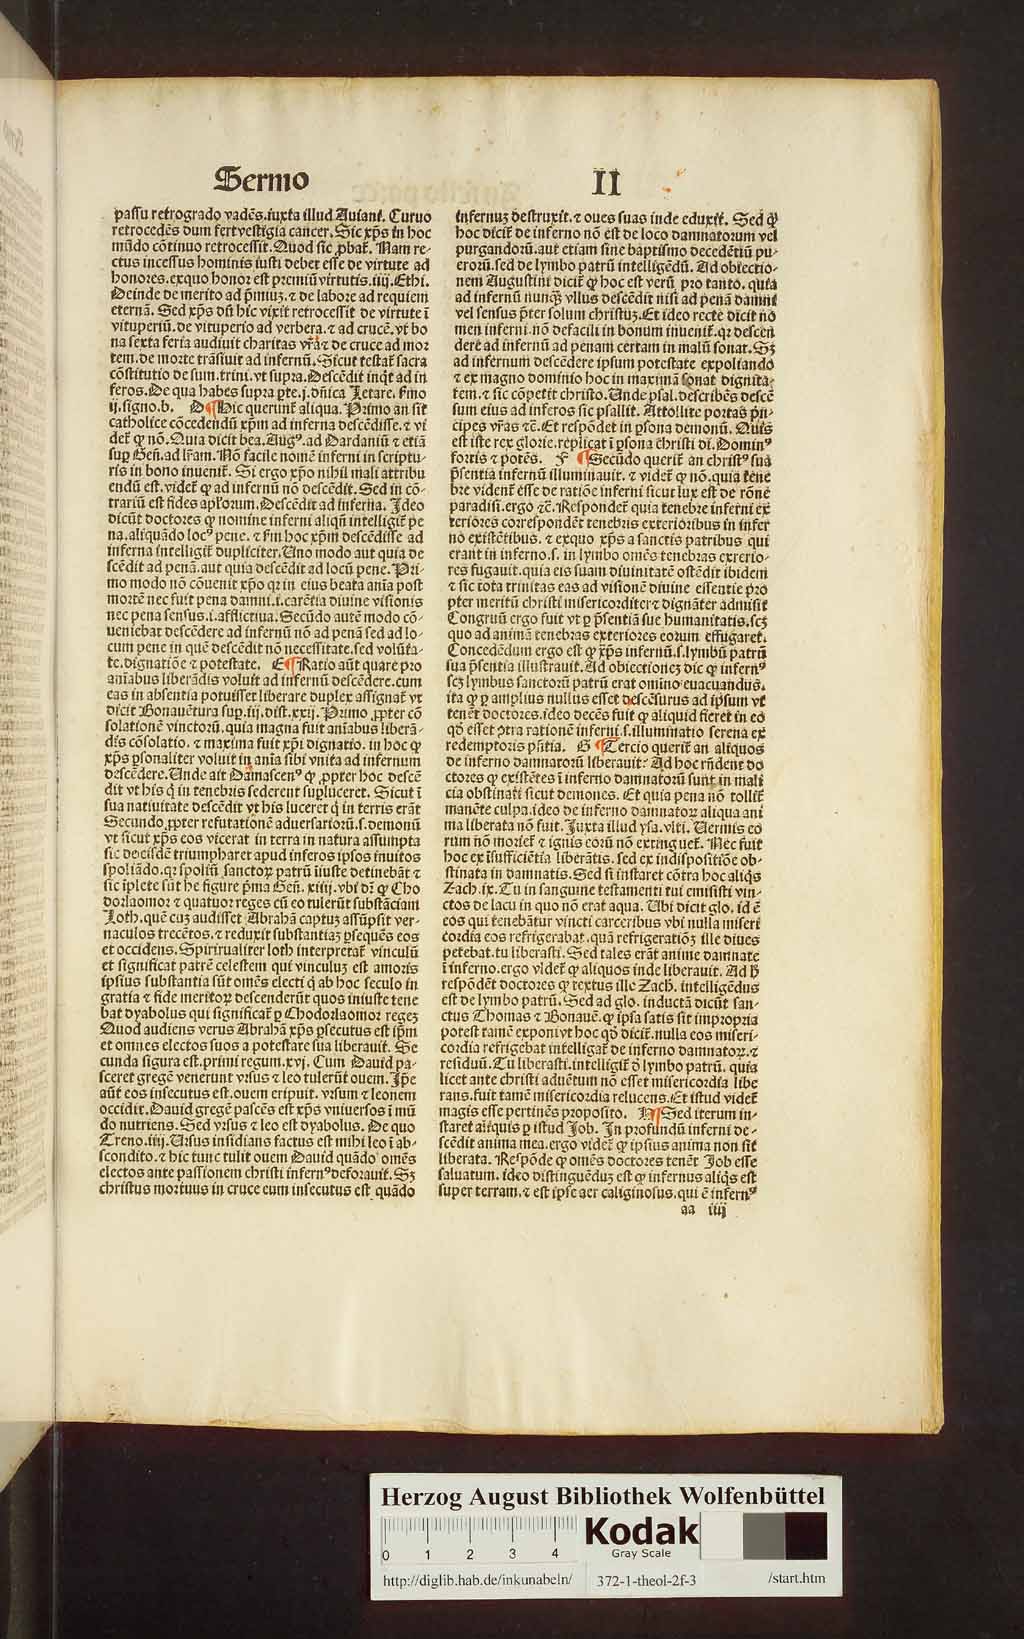 Sermo II
passu retrogrado vadēs. iuxta illud Auiani. Curuo
retrocedēs dum fert vestigia cancer. Sic xp̄s in hoc
mūdo cōtinuo retrocessit. Quod sic ꝓbat᷑. Nam re-
ctus incessus hominis iusti debet esse de virtute ad
honores. ex quo honor est premiū virtutis. iiij. Ethi.
Deinde de merito ad p̄miuꝫ. ⁊ de labore ad requiem
eternā. Sed xp̄s dū hic vixit retrocessit de virtute ī
vituperiū. de vituperio ad verbera. ⁊ ad crucē. vt bo
na sexta feria audiuit charitas vr̄a ⁊ de cruce ad mor
tem. de morte trāsiuit ad infernū. Sicut testat᷑ sacra
cōstitutio de sum. trini. vt supra. Descēdit inq̄t ad in
feros. De qua habes supra ꝑte. j. dn̄ica Letare. ẜmo
ij. signo. b. D ¶ Hic querunt᷑ aliqua. Primo an sit
catholice cōcedendū xp̄m ad inferna descēdisse. ⁊ vi
det᷑ ꝙ nō. Quia dicit bea. Augꝰ. ad Dardaniū ⁊ etiā
suꝑ Gen̄. ad lr̄am. Nō facile nomē inferni in scriptu-
ris in bono inuenit᷑. Si ergo xp̄o nihil mali attribu
endū est. videt᷑ ꝙ ad infernū nō descēdit. Sed in cō-
trariū est fides apl'orum. Descēdit ad inferna. Ideo
dicūt doctores ꝙ nomine inferni aliqn̄ intelligit᷑ pe
na. aliquādo locꝰ pene. ⁊ ẜm hoc xp̄m descēdisse ad
inferna intelligit᷑ dupliciter. Uno modo aut quia de
scēdit ad penā. aut quia descēdit ad locū pene. Pri-
mo modo nō cōuenit xp̄o qꝛ in eius beata aīa post
mortē nec fuit pena damni. i. carētia diuine visionis
nec pena sensus. i. afflictiua. Secūdo autē modo cō-
ueniebat descēdere ad infernū nō ad penā sed ad lo-
cum pene in quē descēdit nō necessitate. sed volūta-
te. dignatiōe ⁊ potestate. E ¶ Ratio aūt quare pro
aīabus liberādis voluit ad infernū descēdere. cum
eas in absentia potuisset liberare duplex assignat᷑ vt
dicit Bonauētura suꝑ. iij. dist. xxij. Primo ꝓpter cō
solationē vinctorū. quia magna fuit aīabus liberā-
dis cōsolatio. ⁊ maxima fuit xp̄i dignatio. in hoc ꝙ
xp̄s ꝑsonaliter voluit in aīa sibi vnita ad infernum
descēdere. Unde ait Damascenꝰ ꝙ ꝓpter hoc descē
dit vt his q̄ in tenebris sederent suꝑluceret. Sicut ī
sua natiuitate descēdit vt his luceret q̄ in terris erāt
Secundo ꝓpter refutationē aduersariorū. s. demonū
vt sicut xp̄s eos vicerat in terra in natura assumpta
sic de eisdē triumpharet apud inferos ipsos inuitos
spoliādo. qꝛ spoliū sanctoꝝ patrū iuste detinebāt ⁊
sic īplete sūt he figure p̄ma Gen̄. xiiij. vbi dr̄ ꝙ Cho
dorlaomor ⁊ quatuor reges cū eo tulerūt substāciam
Loth. quē cuꝫ audisset Abrahā captuꝫ assūpsit ver-
naculos trecētos. ⁊ reduxit substantiaꝫ ꝑsequēs eos
et occidens. Spiritualiter loth interpretat᷑ vinculū
et significat patrē celestem qui vinculuꝫ est amoris
ipsius substantia sūt omēs electi q̄ ab hoc seculo in
gratia ⁊ fide meritoꝝ descenderūt quos iniuste tene
bat dyabolus qui significat᷑ ꝑ Chodorlaomor regeꝫ
Quod audiens verus Abrahā xp̄s ꝑsecutus est ip̄m
et omnes electos suos a potestate sua liberauit. Se
cunda figura est. primi regum. xvj. Cum Dauid pa-
sceret gregē venerunt vrsus ⁊ leo tulerūt ouem. Ip̄e
aūt eos insecutus est. ouem eripuit. vrsum ⁊ leonem
occidit. Dauid gregē pascēs est xp̄s vniuersos ī mū
do nutriens. Sed vrsus ⁊ leo est dyabolus. De quo
Treno. iiij. Ursus insidians factus est mihi leo ī ab-
scondito. ⁊ hic tunc tulit ouem Dauid quādo omēs
electos ante passionem christi infernꝰ deforauit. Sꝫ
christus mortuus in cruce eum insecutus est quādo
infernuꝫ destruxit. ⁊ oues suas inde eduxit. Sed ꝙ
hoc dicit᷑ de inferno nō est de loco damnatorum vel
purgandorū. aut etiam sine baptismo decedētiū pu-
erorū. sed de lymbo patrū intelligēdū. Ad obiectio-
nem Augustini dicit᷑ ꝙ hoc est verū pro tanto. quia
ad infernū nunqꝫ vllus descēdit nisi ad penā damni
vel sensus p̄ter solum christuꝫ. Et ideo recte dicit no
men inferni. nō defacili in bonum inuenit᷑. qꝛ descen
dere ad infernū ad penam certam in malū sonat. Sꝫ
ad infernum descēdere ipsum potestate expoliando
⁊ ex magno dominio hoc in maximā sonat dignita-
tem. ⁊ sic cōpetit christo. Unde psal. describēs descē
sum eius ad inferos sic psallit. Attollite portas p̄n-
cipes vr̄as ⁊c̄. Et respōdet in ꝑsona demonū. Quis
est iste rex glorie. replicat ī ꝑsona christi dī. Dominꝰ
fortis ⁊ potēs. F ¶ Secūdo querit᷑ an christꝰ sua
p̄sentia infernū illuminauit. ⁊ videt᷑ ꝙ nō. quia tene
bre vident᷑ esse de ratiōe inferni sicut lux est de rōne
paradisi. ergo ⁊c̄. Respondet᷑ quia tenebre inferni ex
teriores correspondēt tenebris exterioribus in infer
no existētibus. ⁊ ex quo xp̄s a sanctis patribus qui
erant in inferno. s. in lymbo omēs tenebras exterio-
res fugauit. quia eis suam diuinitatē ostēdit ibidem
⁊ sic tota trinitas eas ad visionē diuine essentie pro
pter meritū christi misericorditer ⁊ dignāter admisit
Congruū ergo fuit vt ꝑ p̄sentiā sue humanitatis. scꝫ
quo ad animā tenebras exteriores eorum effugaret.
Concedēdum ergo est ꝙ xp̄s infernū. s. lymbū patrū
sua p̄sentia illustrauit. Ad obiectioneꝫ dic ꝙ infernꝰ
scꝫ lymbus sanctorū patrū erat omīno euacuandus.
ita ꝙ ꝑ amplius nullus esset descēsurus ad ipsum vt
tenēt doctores. ideo decēs fuit ꝙ aliquid fieret in eo
qd̄ esset ꝯtra rationē inferni. s. illuminatio serena ex
redemptoris p̄sētia. G ¶ Tercio querit᷑ an aliquos
de inferno damnatorū liberauit. Ad hoc rn̄dent do
ctores ꝙ existētes ī inferno damnatorū sunt in mali
cia obstinati sicut demones. Et quia pena nō tollit᷑
manēte culpa. ideo de inferno damnatoꝝ aliqua ani
ma liberata nō fuit. Juxta illud ysa. vlti. Uermis eo
rum nō moriet᷑ ⁊ ignis eorū nō extinguet᷑. Nec fuit
hoc ex īsufficiētia liberātis. sed ex indispositiōe ob-
stinata in damnatis. Sed si instaret cōtra hoc aliqs
Zach. ix. Tu in sanguine testamenti tui emisisti vin-
ctos de lacu in quo nō erat aqua. Ubi dicit glo. id ē
eos qui tenebātur vincti carceribus vbi nulla miseri
cordia eos refrigerabat. quā refrigeratiōꝫ ille diues
petebat. tu liberasti. Sed tales erāt anime damnate
ī inferno. ergo videt᷑ ꝙ aliquos inde liberauit. Ad h̄
respōdēt doctores ꝙ textus ille Zach. intelligēdus
est de lymbo patrū. Sed ad glo. inductā dicūt san-
ctus Thomas ⁊ Bonauē. ꝙ ipsa satis sit impropria
potest tamē exponi vt hoc qd̄ dicit᷑. nulla eos miseri-
cordia refrigebat intelligat᷑ de inferno damnatoꝝ. ⁊
residuū. Tu liberasti. intelligit᷑ ō lymbo patrū. quia
licet ante christi aduētum nō esset misericordia libe
rans. fuit tamē misericordia relucens. Et istud videt᷑
magis esse pertinēs proposito. H ¶ Sed iterum in-
staret aliquis ꝑ istud Job. In profundū inferni de-
scēdit anima mea. ergo videt᷑ ꝙ ipsius anima non sit
liberata. Respōde ꝙ omēs doctores tenēt Job esse
saluatum. ideo distinguēduꝫ est ꝙ infernus aliqs est
super terram. ⁊ est ipse aer caliginosus. qui ē infernꝰ
aa iiij
Herzog August Bibliothek Wolfenbüttel
0 1 2 3 4
Kodak
Gray Scale
http://diglib.hab.de/inkunabeln/ 372-1-theol-2f-3 /start.htm